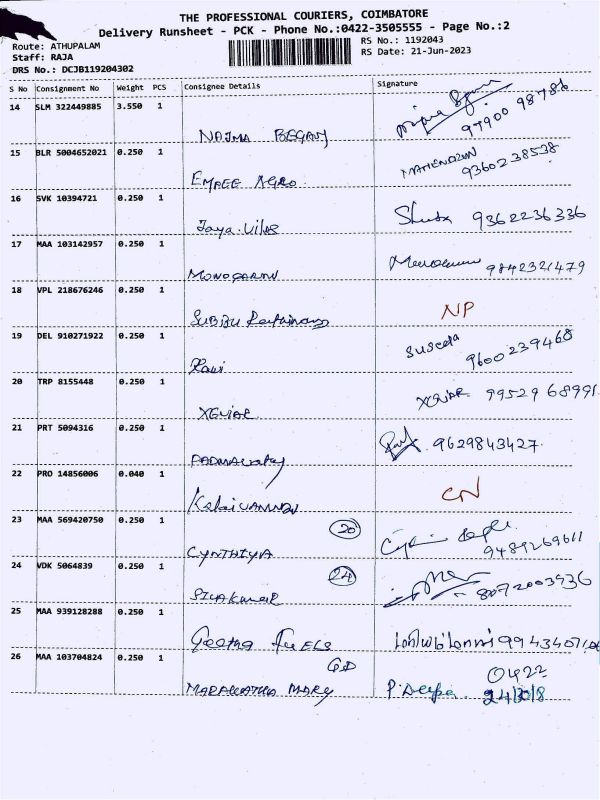 THE PROFESSIONAL COURIERS, COIMBATORE
Delivery Runsheet - PCK - Phone No.:0422-3505555 - Page No.:2
Route: ATHUPALAM
RS No.: 1192043
Staff: RAJA
RS Date: 21-Jun-2023
DRS No.: DCJB119204302
S No Consignment No Weight PCS Consignee Details Signature
14 SLM 322449885 3.550 1
NAJMA BEGAM 97900 98786
15 BLR 5004652021 0.250 1
EMPEE AGRO 9360238538
16 SVK 10394721 0.250 1
Jaya.Vilas 9362236336
17 MAA 103142957 0.250 1
9842321479
18 VPL 218676246 0.250 1
NP
19 DEL 910271922 0.250 1
Ravi Suseela 9600239468
20 TRP 8155448 0.250 1
XEVIAR XEVIAR 99529 68991
21 PRT 5094316 0.250 1
9629843427
22 PRO 14856006 0.040 1
KalaiVANNAN CN
23 MAA 569420750 0.250 1
20
CYNTHIYA 9489269611
24 VDK 5064839 0.250 1
24
SIVAKUMAR 8072003436
25 MAA 939128288 0.250 1
Geetha FUELS
26 MAA 103704824 0.250 1
GD 0422
MARAGATHA MARY P. Deepa